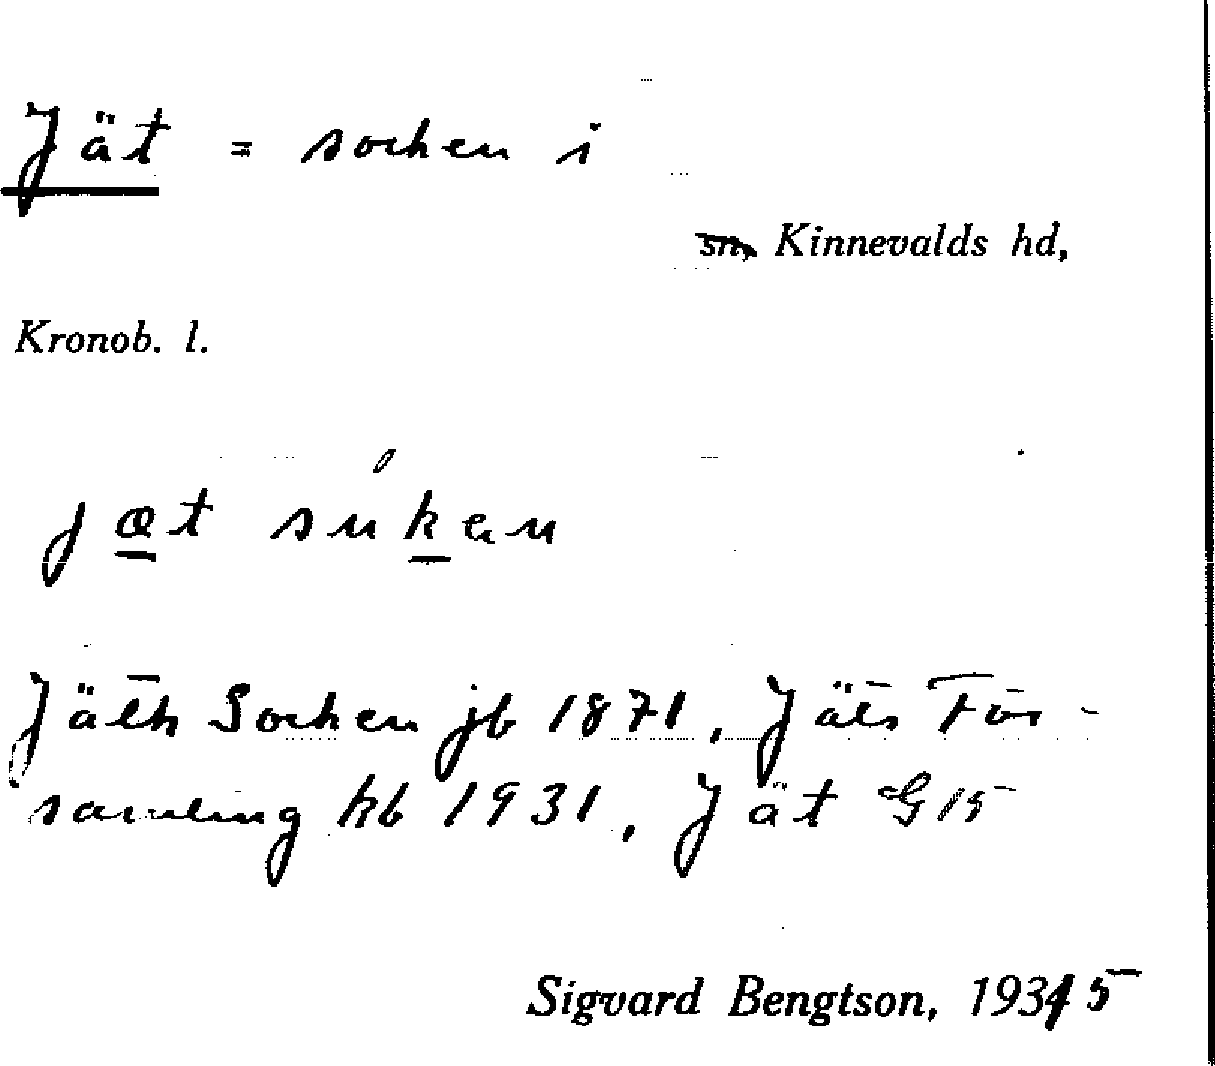 Jät = socken i
Kinnevalds hd,
Kronob. l.
jæt sukan
Jäth Socken jb 1871, Jäts För-
samling kb 1931, Jät G 15
Sigvard Bengtson, 1935